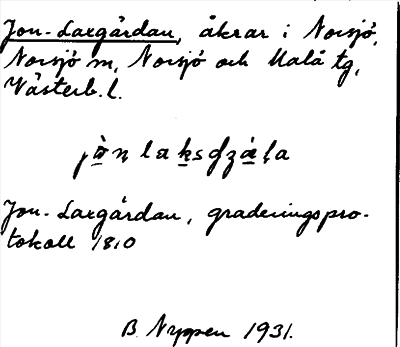 Jon-Laxgårdan, åkrar i Norsjö,
Norsjö sn, Norsjö och Malå tg,
Västerb. l.
Jon-Laxgårdan, graderingspro-
tokoll 1810
B. Nyppen 1931.